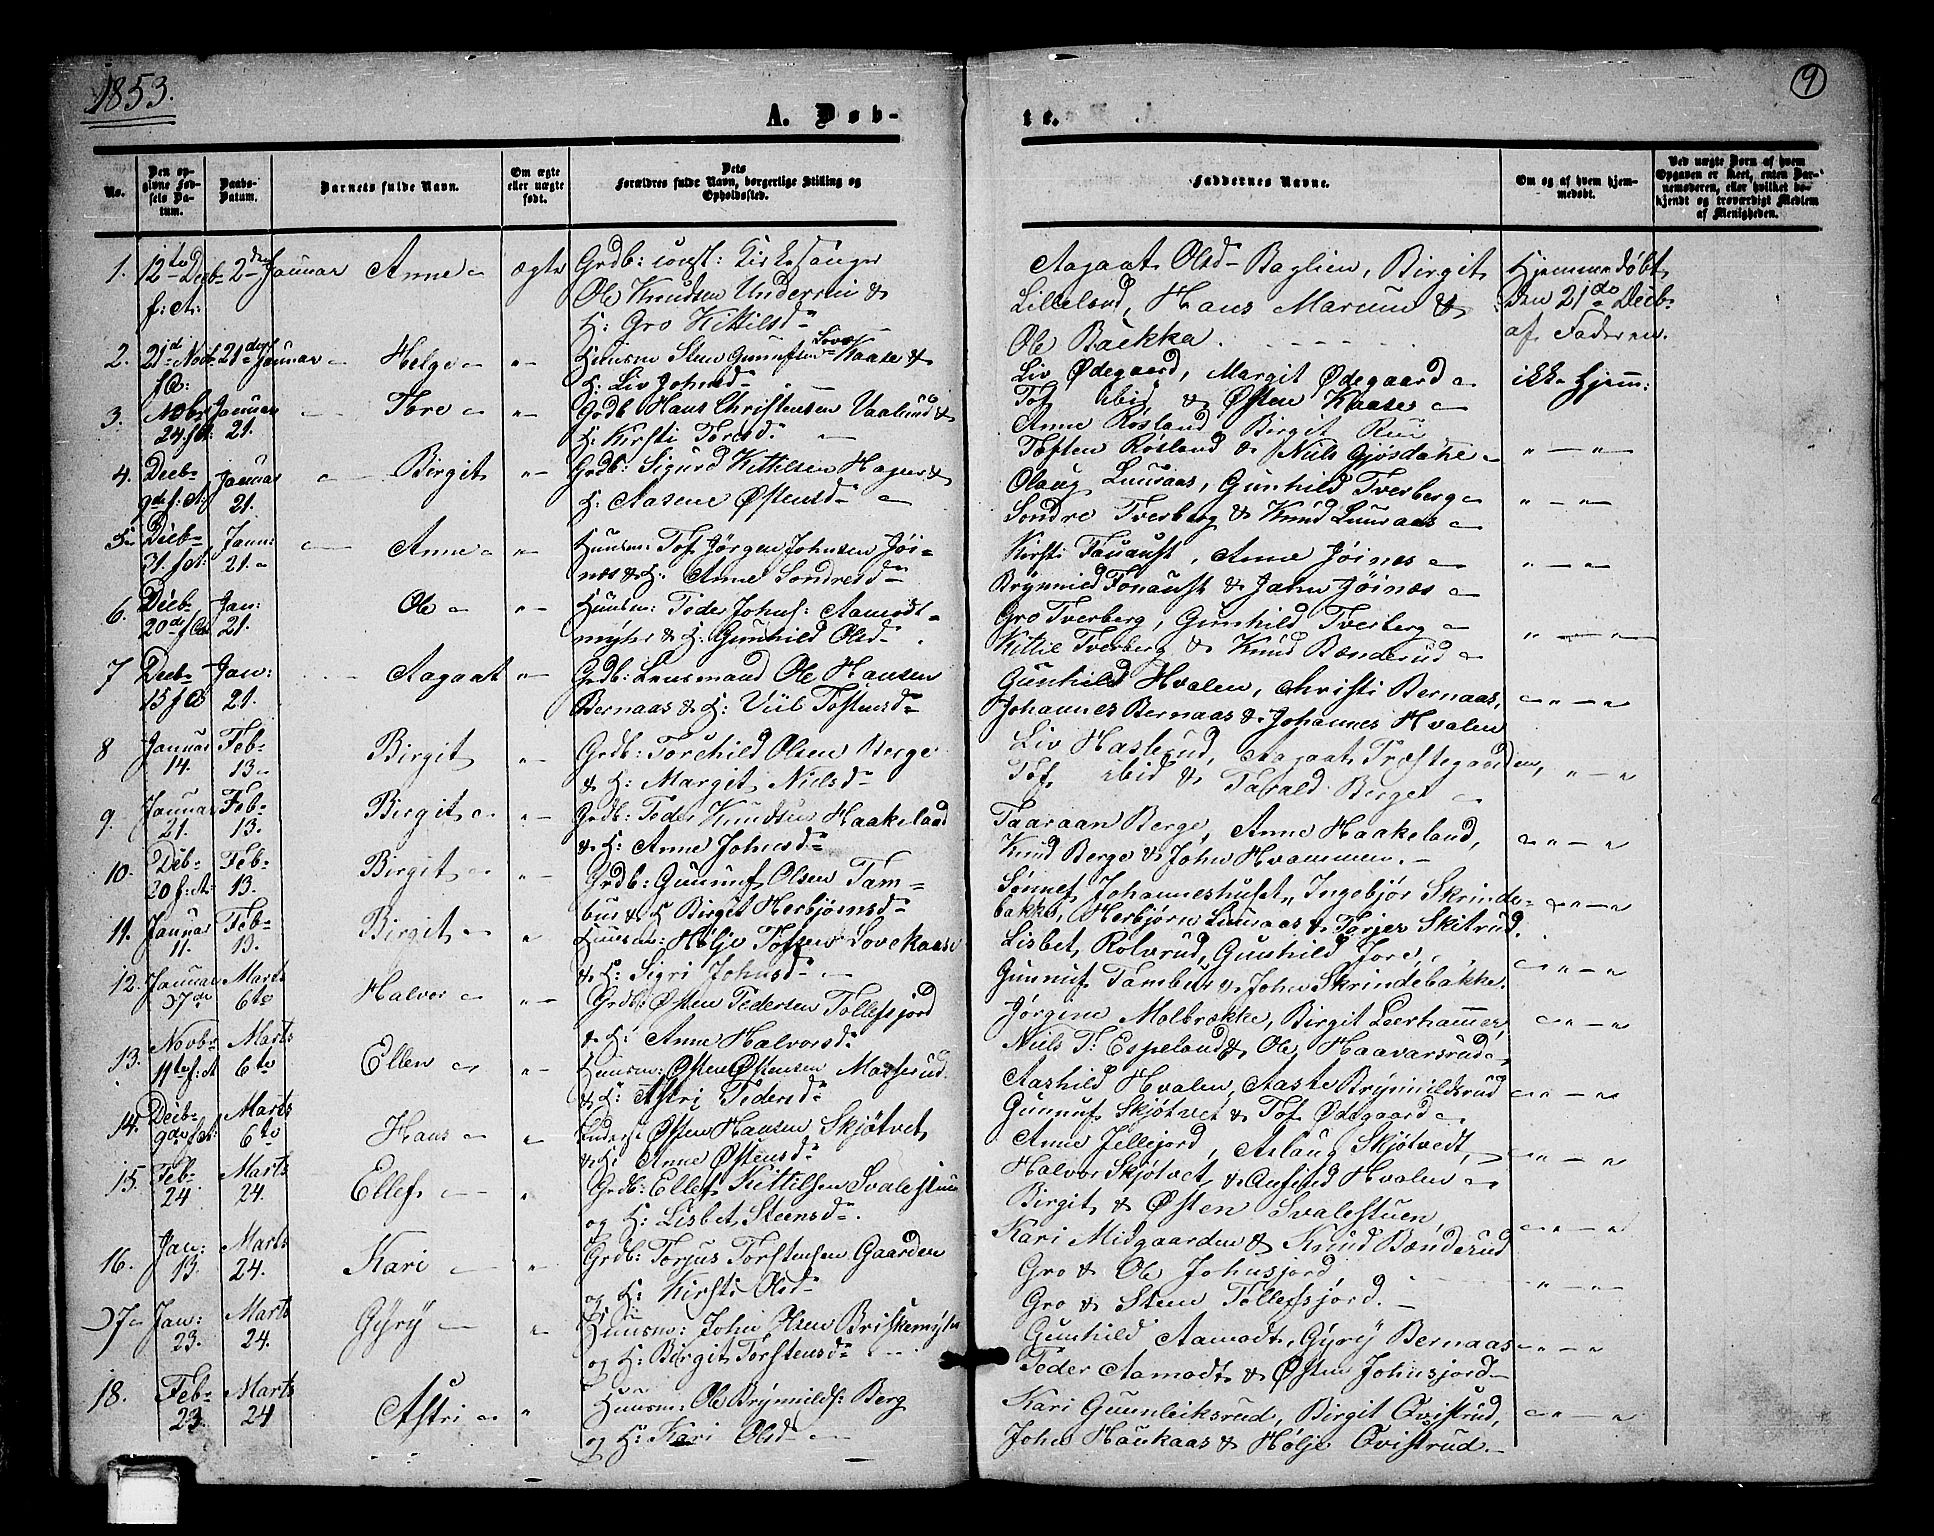 1853.
9
A. Døb-
te.
No.
Den op-
givne Fød-
sels Da-
tum.
Daabs-
Datum.
Barnets fulde Navn.
Om ægte
eller uægte
født.
Dets
Forældres fulde Navn, borgerlige Stilling og
Opholdssted.
Faddernes Navne.
Om og af hvem hjem-
medøbt.
Ved uægte Børn af hvem
Opgaven er skeet, enten Bar-
nemoderen, eller hvilket be-
kjendt og troværdigt Medlem
af Menigheden.
1. 12te Decb. f: A: 2den Januar Anne ægte Grdb: const: Kirkesanger
Ole Knudsen Underrui &
H: Gro Kittilsd.
Aagaat Olsd. Baglien, Birgit
Lillelsud, Hans Marum &
Ole Bækka.
Hjemmedøbt
den 21de Decb.
af Faderen.
2. 21de Novb. f A: 21de Januar Helge "– Huusm: Sten Gunnufsen Love Kaase &
H: Liv Johnsd.
Liv Ødegaard, Margit Ødegaard
Tof ibid & Østen Kaase
ikke Hjem:
3. Novb. 24. f A: Januar 21. Tore "– Grdb: Hans Christensen Vaalund &
H: Kirsti Toresd.
Anne Røsland, Birgit Rui
Tosten Røsland & Niels Gjøsdahl
"–"–
4. Decb. 9de f: A: Januar 21. Birgit "– Grdb: Sigurd Kittilsen Hagen &
H: Aasene Østensd.
Olaug Luuraas, Gunhild Tverberg
Sondre Tverberg & Knud Luuraas
"–"–
5. Decb. 31. f A: Jann: 21. Anne "– Huusm: Tof Jørgen Johnsen Jøi-
næs & H: Anne Sondresd.
Kirsti Fauaust, Anne Jøines
Brynnild Fonaust & John Jøinæs
"–"–
6. Decb. 20de f A: Jan: 21. Ole "– Huusm: Peder Johns: Aamodt
myhr & H: Gunhild Olsd.
Gro Tverberg, Gunhild Tverberg
Kittil Tverberg & Knud Bænderud
"–"–
7 Decb. 15 f A Jan: 21. Aagaat "– Grdb: Lensmand Ole Hansen
Bernaas & H: Viil Tostensd.
Gunhild Hvalen, Christi Bernaas,
Johannes Bernaas & Johannes Hvalen
"–"
8 Januar 14. Feb. 13. Birgit "– Grdb: Torchild Olsen Berge
& H: Margit Nielsd.
Liv Haslerud, Aagaat Præstegaarden,
Tof ibid & Tarald Berget
"–"
9. Januar 21. Feb. 13. Birgit "– Grdb: Peder Knudsen Haakeland
& H: Anne Johnsd.
Taaraan Berge, Anne Haakeland,
Knud Berge & John Hvammen.
"–"
10. Decb. 20 f: A: Feb. 13. Birgit "– Grdb: Gunnuf Olsen Tam-
bur & H Birgit Herbjørnsd.
Sønnef Johanneshuset, Ingebjør Skrinde-
bakke, Herbjørn Luuraas & Torjer Skitrud.
"–"
11. Januar 11. Feb. 13. Birgit " Huusm: Hølje Tofsen Lovekaase
& H: Sigri Johnsd.
Lisbet Rolvrud, Gunhild Jore,
Gunnuf Tambur & John Skrindebakke.
"–"
12. Januar 17de Marts 6te Halvor "– Grdb: Østen Pedersen Tollefsjord
& H: Anne Halvorsd.
Jørgine Molbrække, Birgit Leerhammer
Niels T: Espeland & Ole Haavarsrud
"–"
13. Novbr 11te f: A Marts 6te Ellen "– Huusm: Østen Østensen Masserud
& H: Astri Pedersd.
Aashild Hvalen, Aaste Brynnildsrud
Gunnuf Skjøtvet & Tof Ødegaard
"–"
14. Decb. 9de f: A: Marts 6te Hans " Inders: Østen Hansen Skjøtvet
& H: Anne Østensd.
Anne Jellejord, Aslaug Skjøtvedt,
Halvor Skjøtvet & Anfind Hvalen
"–"
15. Feb. 24 Marts 24. Ellef " Grdb: Ellef Kittilsen Svalestuen
og H: Lisbet Steensd.
Birgit & Østen Svalestuen,
Kari Midgaarden & Knud Bænderud
"–"
16. Jan: 13. Marts 24. Kari " Grdb: Torjus Torstensen Gaarden
og H: Kirsti Olsd.
Gro & Ole Johnsjord,
Gro & Sten Tollefsjord.
"–"
17 Jan: 23. Marts 24. Gyry " Huusm: John Olsen Briskemyhr
og H: Birgit Torstensd.
Gunhild Aamodt, Gyry Bernaas
Peder Aamodt & Østen Johnsjord
"–"
18. Feb. 23. Marts 24 Astri " Huusm: Ole Brynnilds: Berg
og H: Kari Olsd.
Kari Gunleiksrud, Birgit Qvistrud,
John Haukaas & Hølje Qvistrud.
"–"